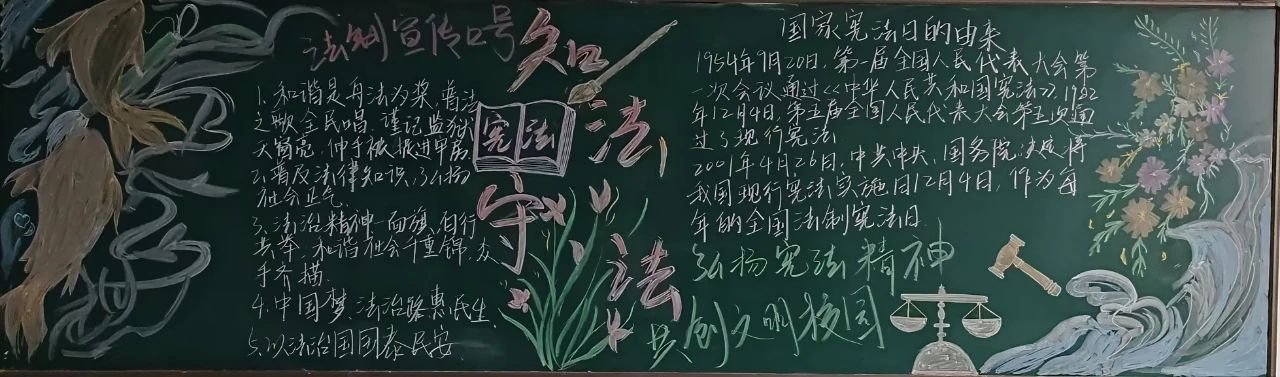 法制宣传口号
1、和谐是舟法为桨,普法
之歌全民唱.谨记监狱
大简亮,伸手被抓进牢房
2、普及法律知识,弘扬
社会正气.
3、法治精神一面旗,同行
共举,和谐社会千重锦,众
手齐描.
4、中国梦 法治 惠民生
5、以法治国国泰民安
知法
宪法
守法
国家宪法日的由来
1954年9月20日,第一届全国人民代表大会第
一次会议通过《中华人民共和国宪法》,1982
年12月4日,第五届全国人民代表大会第五次通
过了现行宪法.
2001年4月26日,中共中央、国务院决定将
我国现行宪法实施日12月4日,作为每
年的全国法制宪法日.
弘扬宪法精神
共创文明校园